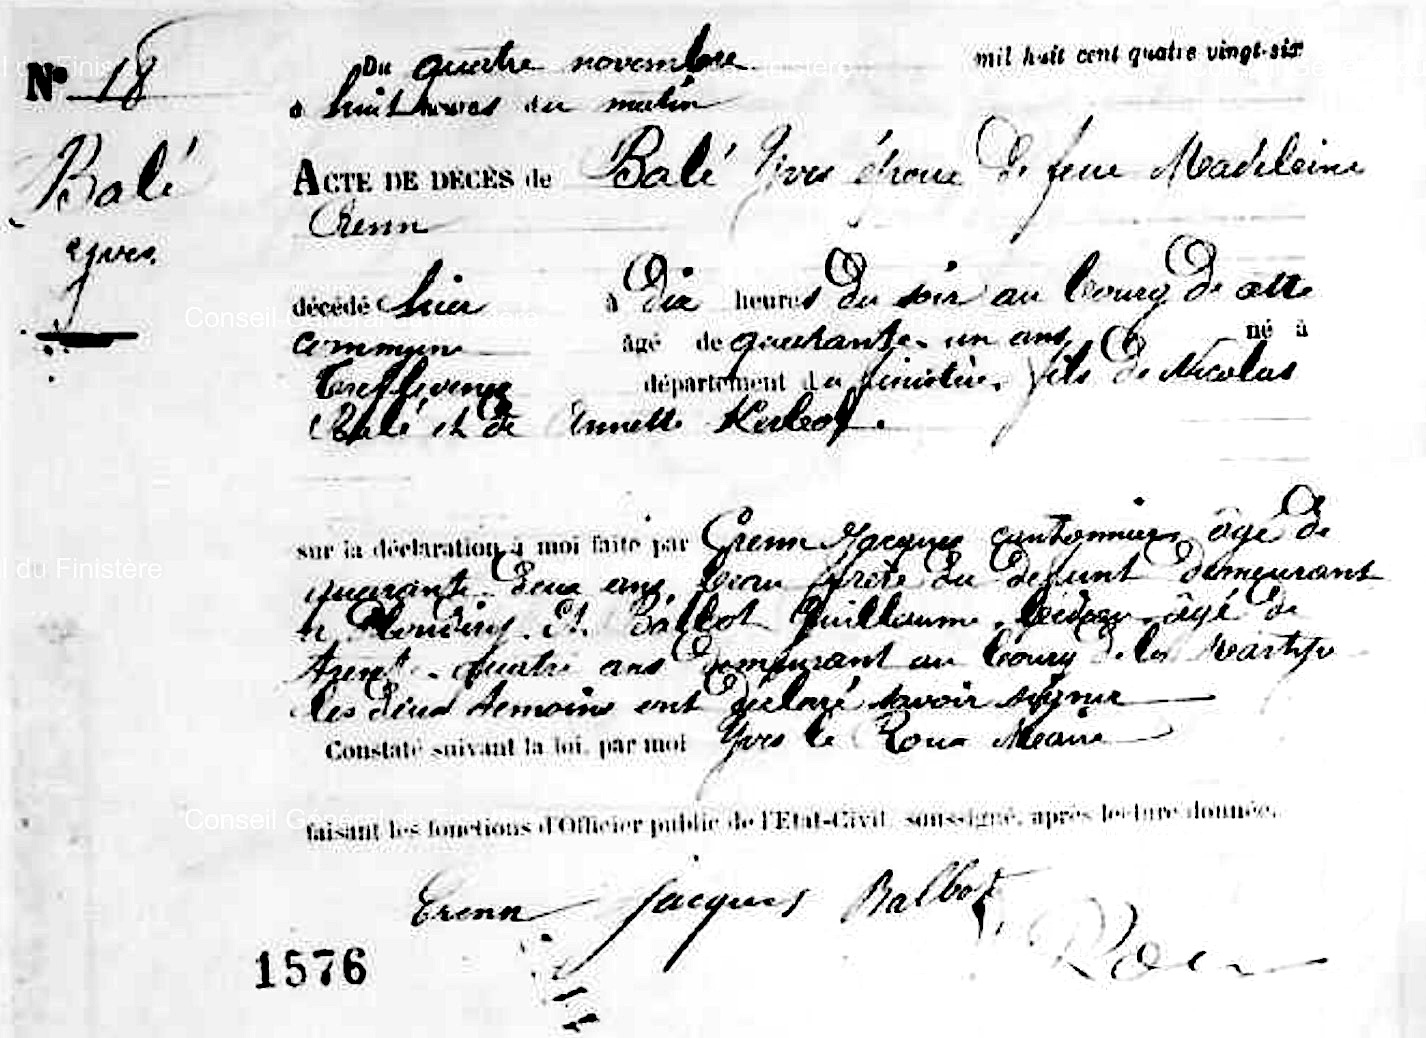 N° 18
Du quatre novembre mil huit cent quatre vingt-six
à huit heures du matin
Balé
Yves
ACTE DE DÉCÈS de Balé Yves époux de feue Madeleine
Crenn
décédé hier à dix heures du soir au bourg de cette
commune âgé de quarante-un ans, né à
Tréflévenez département du Finistère, fils de Nicolas
Balé et de Annette
sur la déclaration à moi faite par Crenn Jacques cantonnier, âgé de
quarante-deux ans, beau frère du défunt demeurant
à Ploudiry. Et Balbot Guillaume, âgé de
trente-quatre ans demeurant au bourg de la Martyre
les deux témoins ont déclaré savoir signer
Constaté suivant la loi, par moi Yves le Roux Maire
faisant les fonctions d'Officier public de l'Etat-Civil, soussigné, après lecture donnée.
Crenn Jacques Balbot
Roux
1576
Conseil Général du Finistère